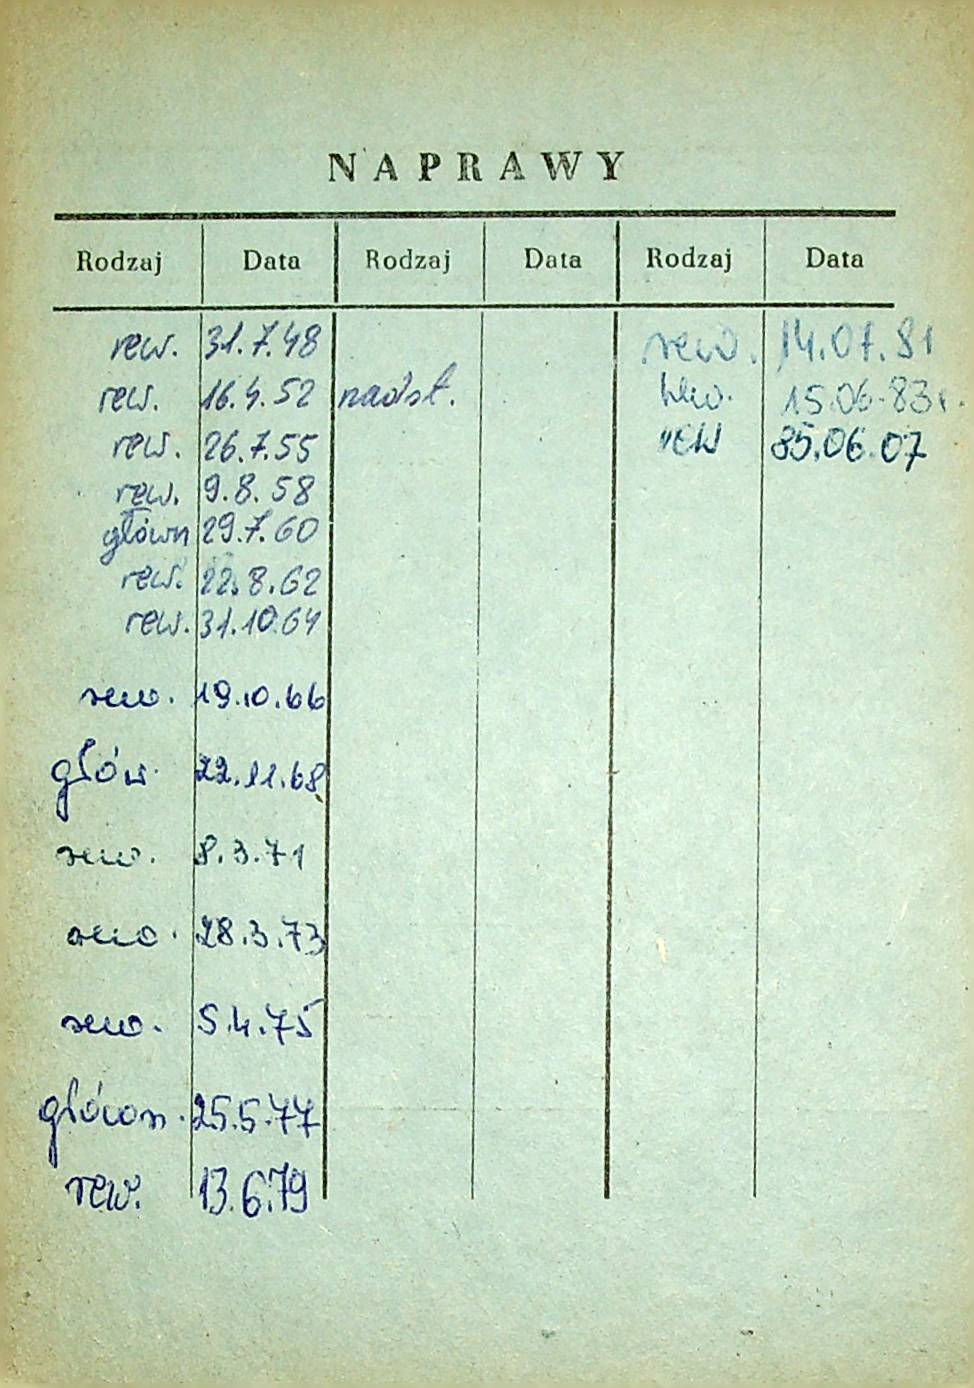 NAPRAWY
Rodzaj Data Rodzaj Data Rodzaj Data
rew. 31.7.48 rew. 14.07.81
rew. 16.4.52 nadst. rew. 15.06.83r.
rew. 26.7.55 rew 85.06.07
rew. 9.8.58
główn 29.7.60
rew. 22.8.62
rew. 31.10.64
rew. 19.10.66
głów. 22.11.68
rew. 8.3.71
rew. 28.3.73
rew. 5.4.75
główn. 25.5.77
rew. 13.6.79